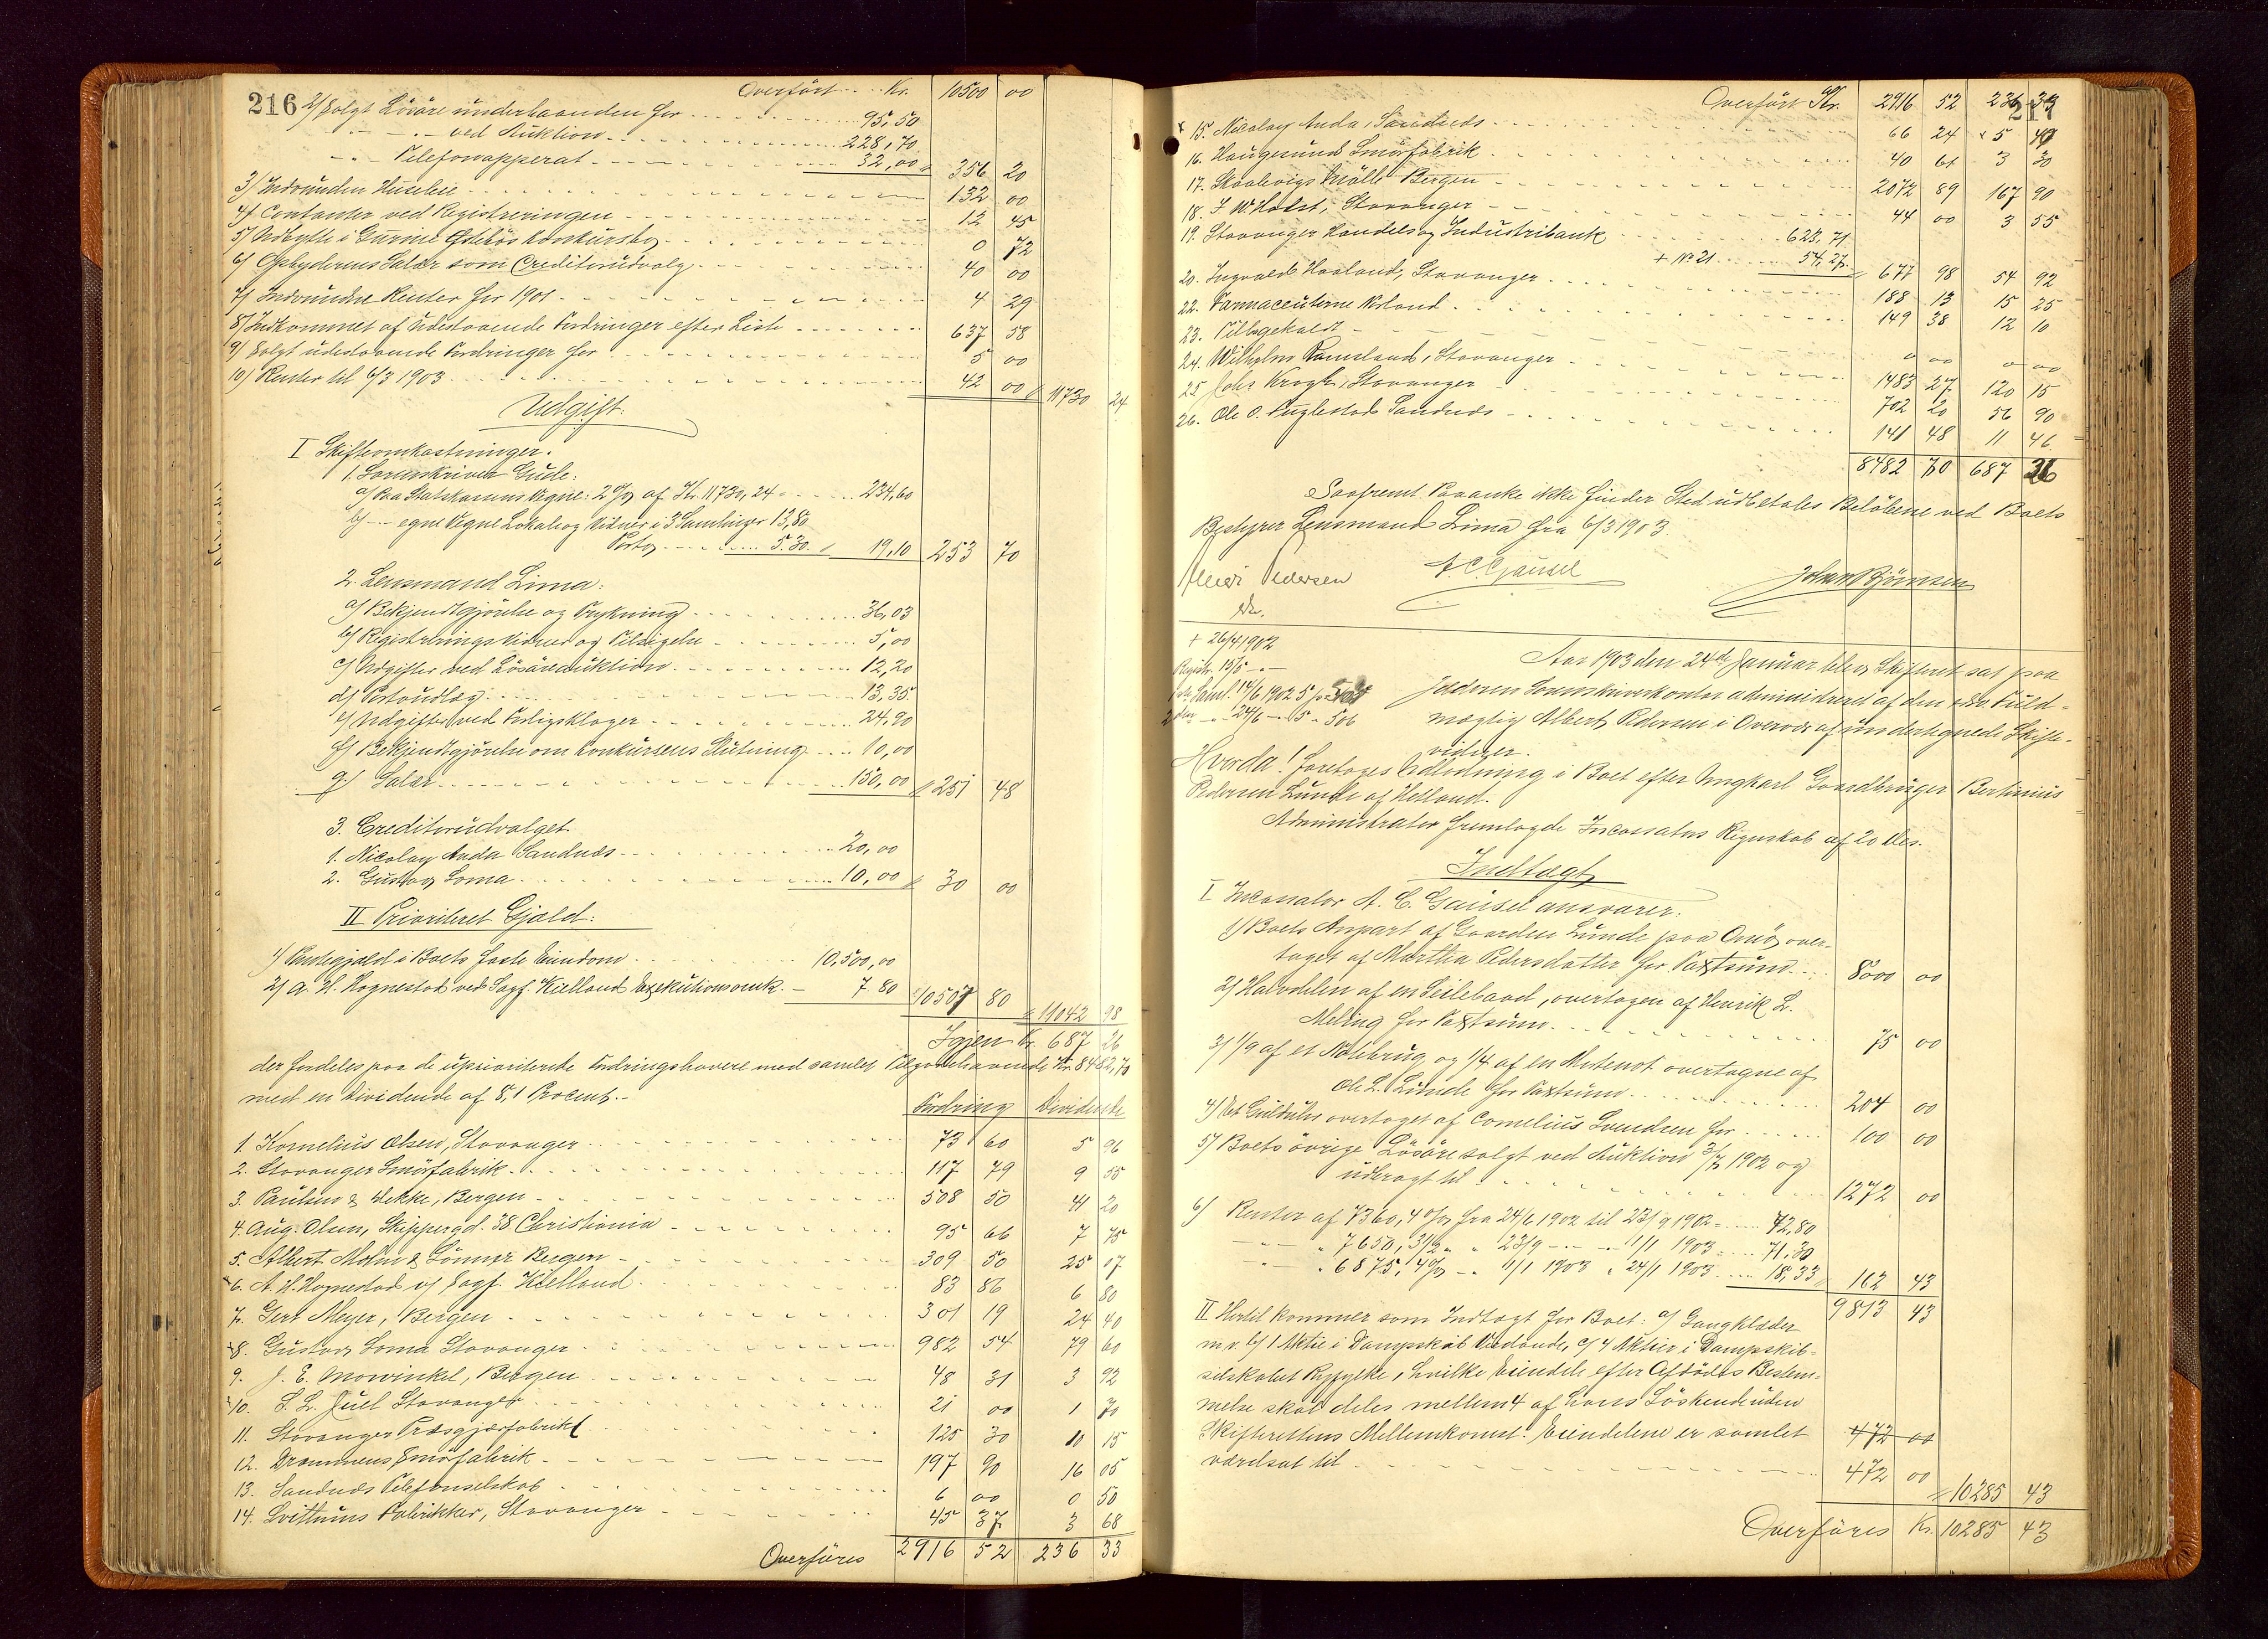 216
Overført Kr. 10500 00
2/ Solgt Løsøre underhaanden for 95,50
" ved Auktion 228,70
" Telefonapperat 32,00 356 20
3/ Indvunden Husleie 132 00
4/ Contanter ved Registreringen 12 45
5/ Udbytte i Gurine Østebøs konkursbo 0 72
6/ Opbyderens Salær som Creditorudvalg 40 00
7/ Indvundne Renter for 1901 4 29
8/ Indkommet af Udestaaende Fordringer efter Liste 637 58
9/ Solgt udestaaende Fordringer for 5 00
10/ Renter til 6/3 1903 42 00 11730 24
Udgift.
I Skifteomkostninger.
1. Sorenskriver Gude:
a/ Paa Statskassens Vegne: 2 % af Kr. 11730,24 = 234,60
b/ — egne Vegne Lokale og Vidner i 3 Samlinger 13,80
Porto 5.30 19,10 253 70
2. Lensmand Lima:
a/ Bekjendtgjørelse og Trykning 36,03
b/ Registreringsvidner og Tilsigelse 5,00
c/ Udgifter ved Løsøreauktion 12,20
d/ Portoudlæg 13,35
e/ Udgifter ved Forligsklager 24,90
f/ Bekjendtgjørelse om konkursens Slutning 10,00
g/ Salær 150,00 251 48
3. Creditorudvalget
1. Nicolay Anda Sandnæs 20,00
2. Gustav Soma 10,00 30 00
II Prioriteret Gjæld:
1/ Pantegjæld i Boets faste Eiendom 10,500,00
2/ A. H. Hognestad ved Sagf. Kielland Exekutionsomk. 7 80 10507 80 11042 98
Igjen Kr. 687 26
der fordeles paa de uprioriterte Fordringshavere med samlet Tilgodehavende Kr. 8482,70
med en Dividende af 8,1 Procent.
Fordring Dividende
1. Kornelius Olsen, Stavanger 73 60 5 96
2. Stavanger Smørfabrik 117 79 9 55
3. Paulsen & Wekke, Bergen 508 50 41 20
4. Aug. Olsen, Skippergd. 38 Christiania 95 66 7 75
5. Albert Mohn & Sønner Bergen 309 50 25 07
6. A. H. Hognestad v/ Sagf. Kielland 83 86 6 80
7. Gert Meyer, Bergen 301 19 24 40
8. Gustav Soma Stavanger 982 54 79 60
9. J. E. Mowinkel, Bergen 48 31 3 92
10. S. L. Juel Stavanger 21 00 1 70
11. Stavanger Presgjærfabrik 125 30 10 15
12. Drammens Smørfabrik 197 90 16 05
13. Sandnæs Telefonselskab 6 00 0 50
14. Svithuns Fabrikker, Stavanger 45 37 3 68
Overføres 2916 52 236 33
217
Overført Kr. 2916 52 236 33
15. Nicolay Anda, Sandnæs 66 24 5 40
16. Haugesund Smørfabrik 40 61 3 30
17. Skaalevigs Mølle Bergen 2072 89 167 90
18. F. W. Holst, Stavanger 44 00 3 55
19. Stavanger Handels og Industribank 623,71
+ No 21 54,27 677 98 54 92
20. Ingvald Haaland, Stavanger 188 13 15 25
22. Farmaceuterne Norland 149 38 12 10
23. Tilbagekaldt 0 00 0 00
24. Wilhelm Ramsland, Stavanger 1483 27 120 15
25. Krogh, Stavanger 702 20 56 90
26. Ole O. Fuglestad Sandnæs 141 48 11 46
8482 70 687 26
Saafremt Paaanke ikke finder Sted udbetales Beløbene ved Boets
Bestyrer Lensmand Lima fra 6/3 1903.
Albert Pedersen A. C. Gausel Johan Bjørnsen
+ 26/4 1902
Registr. 19/5
1ste Saml. 14/6 1902 5 504
24/6 — 5 - 506
Aar 1903 den 24de Januar blev Skifteret sat paa
Jæderens Sorenskriverkontor administreret af den edsv. Fuld-
mægtig Albert Pedersen i Overvær af undertegnede Skifte-
vidner.
Hvorda! foretoges Udlodning i Boet efter Ungkarl Gaardbruger Bertinius
Pedersen Lunde af Helland.
Administrator fremlagde Incassators Regnskab af 20 ds.
Indtægt
I Incassator A. C. Gausel ansvarer:
1/ Boets Anpart af Gaarden Lunde paa Omø, over-
taget af Martha Pedersdatter for Taxtsum 8000 00
2/ Halvdelen af en Seilebaad, overtagen af Henrik L.
Meling for Taxtsum 75 00
3/ 1/9 af et Notebrug og 1/4 af en Mortenot overtagne af
Ole L. Lunde for Taxtsum 204 00
4/ Et Gulduhr overtaget af Cornelius Svendsen for 100 00
5/ Boets øvrige Løsøre solgt ved Auktion 3/7 1902 og
udbragt til 1272 00
6/ Renter af 7360, 4 % fra 24/6 1902 til 23/9 1902 = 72,80
" " 7650, 3 1/2 " " 23/9 — " 1/1 1903 = 71.30
" " 6875, 4 % — " 1/1 1903 " 24/1 1903 18,33 162 43
9813 43
II Hertil kommer som Indtægt for Boet: a/ Gangklæder
m.v. b/ 1 Aktie i Dampskib c/ 4 Aktier i Dampskib-
selskabet Ryfylke, hvilke Eiendele efter Afdødes Bestem-
melse skal deles mellem 4 af hans Søskende uden
Skifterettens Mellemkomst. Eiendelene er samlet 472 00
værdsat til 472 00 10285 43
Overføres Kr. 10285 43